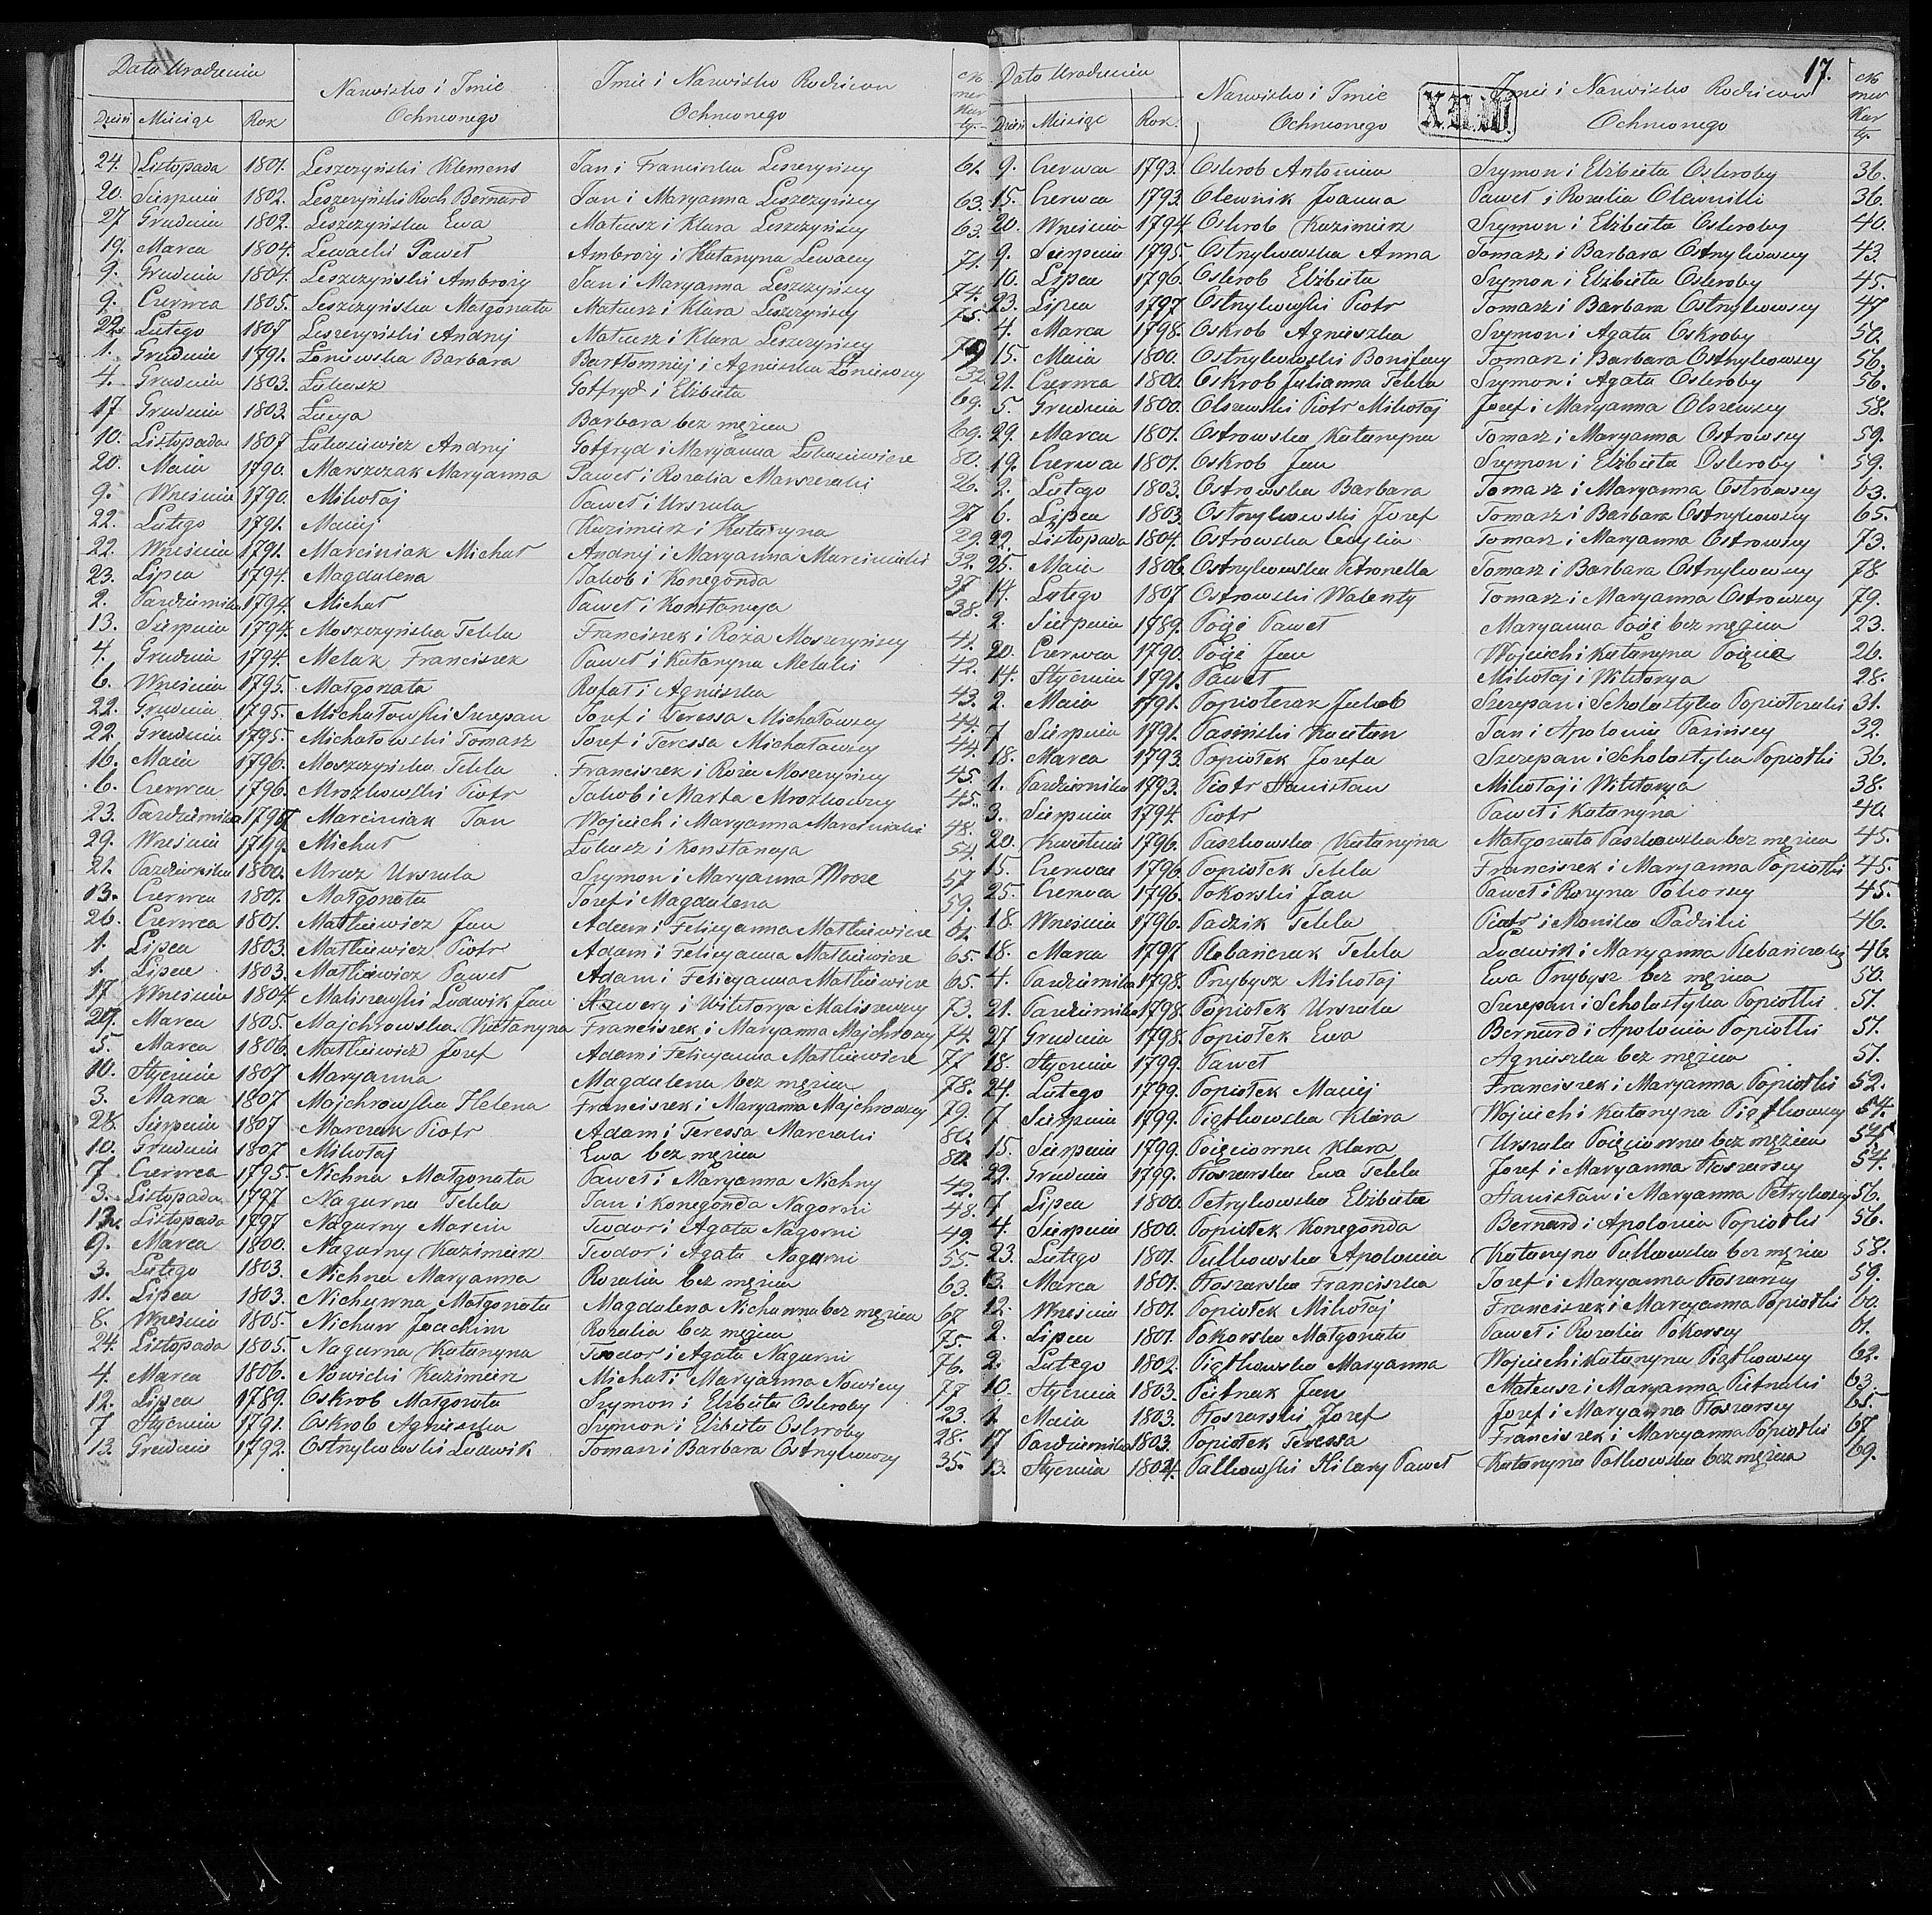 Data Urodzenia
Dzień Miesiąc Rok Nazwisko i Imie Ochrzconego Imie i Nazwisko Rodziców Numer Karty
24. Listopada 1801. Leszczyński Klemens Jan i Franciszka Leszczyńscy 61.
20. Sierpnia 1802. Leszczyński Roch Bernard Jan i Maryanna Leszczyńscy 63.
27 Grudnia 1802. Leszczyńska Ewa Mateusz i Klara Leszczyńscy 63.
19. Marca 1804. Lewacki Paweł Ambroży i Katarzyna Lewaccy 71.
9. Grudnia 1804. Leszczyński Ambroży Jan i Maryanna Leszczyńscy 74.
9. Czerwca 1805. Leszczyńska Małgorzata Mateusz i Klara Leszczyńscy 75.
22. Lutego 1807 Leszczyński Andrzej Mateusz i Klara Leszczyńscy 79
1. Grudnia 1791. Łoniewska Barbara Bartłomniej i Agnieszka Łoniewscy 32.
4. Grudnia 1803. Łukasz Gotfryd i Elżbieta 69.
17 Grudnia 1803. Łucya Barbara bez mężna 69.
10. Listopada 1807 Łukasiewicz Andrzej Gotfryd i Maryanna Łukasiewicze 80.
20. Maia 1790. Marszczak Maryanna Paweł i Rozalia Marszczaki 26.
9. Wrześnie 1790. Mikołaj Paweł i Urszula 27
22. Lutego 1791. Maciej Kazimierz i Katarzyna 29.
22. Wrześnie 1791. Marciniak Michał Andrzej i Maryanna Marciniaki 32.
23. Lipca 1794. Magdalena Jakob i Konegonda 37
2. Pazdziernika 1794. Michał Paweł i Konstancya 38.
13. Sierpnia 1794. Moszczyńska Tekla Franciszek i Róża Moszczyńscy 41.
4. Grudnia 1794. Melak Franciszek Paweł i Katarzyna Melaki 42.
6. Wrześnie 1795. Małgorzata Rafał i Agnieszka 43.
22. Grudnia 1795. Michałowski Szczepan Jozef i Teressa Michałowscy 44.
22. Grudnia 1795. Michałowski Tomasz Jozef i Teressa Michałowscy 44.
16. Maia 1796. Moszczyńska Tekla Franciszek i Róża Moszczyńscy 45.
6. Czerwca 1796. Mrozkowski Piotr Jakob i Marta Mrozkowscy 45.
23. Pazdziernika 1797 Marciniak Jan Wojciech i Maryanna Marciniaki 48.
29. Wrześnie 1799. Michał Łukasz i Konstancya 54.
21. Pazdziernika 1800. Mroz Urszula Szymon i Maryanna Mroze 57
13. Czerwca 1801. Małgorzata Jozef i Magdalena 59.
26. Czerwca 1801. Matkiewicz Jan Adam i Felicyanna Matkiewicze 61.
1. Lipca 1803. Matkiewicz Piotr Adam i Felicyanna Matkiewicze 65.
1. Lipca 1803. Matkiewicz Paweł Adam i Felicyanna Matkiewicze 65.
17 Wrześnie 1804. Maliszewski Ludwik Jan Xawery i Wiktorya Maliszewscy 73.
29. Marca 1805. Majchrowska Katarzyna Franciszek i Maryanna Majchrowscy 74.
5. Marca 1806. Matkiewicz Jozef Adam i Felicyanna Matkiewicze 77
10. Stycznia 1807 Maryanna Magdalena bez mężna 78.
3. Marca 1807 Majchrowska Helena Franciszek i Maryanna Majchrowscy 79.
28. Sierpnia 1807 Marczak Piotr Adam i Teressa Marczaki 80.
10. Grudnia 1807 Mikołaj Ewa bez mężna 80.
7 Czerwca 1795. Nichna Małgorzata Paweł i Maryanna Nichny 42.
3. Listopada 1797 Nagurna Tekla Jan i Konegonda Nagorni 48.
12. Listopada 1797 Nagurny Marcin Teodor i Agata Nagorni 49.
9. Marca 1800. Nagurny Kazimierz Teodor i Agata Nagurni 55.
3. Lutego 1803. Nichna Maryanna Rozalia bez mężna 63.
11. Lipca 1803. Nichuwna Małgorzata Magdalena Nichuwna bez mężna 67
8. Wrześnie 1805. Nichuw Joachim Rozalia bez mężna 75.
24. Listopada 1805. Nagurna Katarzyna Teodor i Agata Nagurni 76.
4. Marca 1806. Nowicki Kazimierz Michał i Maryanna Nowiccy 77
12. Lipca 1789. Oskrob Małgorzata Szymon i Elżbieta Oskroby 23.
7. Stycznia 1791. Oskrob Agnieszka Szymon i Elżbieta Oskroby 28.
13. Grudnia 1792. Ostrzykowski Ludwik Tomasz i Barbara Ostrzykowscy 35.
17.
Data Urodzenia
Dzień Miesiąc Rok. Nazwisko i Imie Ochrzconego Imie i Nazwisko Rodziców Numer Karty
9. Czerwca 1793. Oskrob Antonina Szymon i Elżbieta Oskroby 36.
15. Czerwca 1793. Olewnik Joanna Paweł i Rozalia Olewniki 36.
20. Wrześnie 1794. Oskrob Kazimierz Szymon i Elżbieta Oskroby 40.
9. Sierpnia 1795. Ostrzykowska Anna Tomasz i Barbara Ostrzykowscy 43.
10. Lipca 1796. Oskrob Elżbieta Szymon i Elżbieta Oskroby 45.
23. Lipca 1797 Ostrzykowski Piotr Tomasz i Barbara Ostrzykowscy 47
4. Marca 1798. Oskrob Agnieszka Szymon i Agata Oskroby 50.
15. Maia 1800. Ostrzykowski Bonifacy Tomasz i Barbara Ostrzykowscy 56.
21. Czerwca 1800. Oskrob Julianna Tekla Szymon i Agata Oskroby 56.
5. Grudnia 1800. Olszewski Piotr Mikołaj Jozef i Maryanna Olszewscy 58.
29. Marca 1801. Ostrowska Katarzyna Tomasz i Maryanna Ostrowscy 59.
19. Czerwca 1801. Oskrob Jan Szymon i Elżbieta Oskroby 59.
2. Lutego 1803. Ostrowska Barbara Tomasz i Maryanna Ostrowscy 63.
6. Lipca 1803. Ostrzykowski Jozef Tomasz i Barbara Ostrzykowscy 65.
22. Listopada 1804. Ostrowska Cecylia Tomasz i Maryanna Ostrowscy 73.
25. Maia 1806. Ostrzykowska Petronella Tomasz i Barbara Ostrzykowscy 78
14. Lutego 1807 Ostrowski Walenty Tomasz i Maryanna Ostrowscy 79.
2. Sierpnia 1789. Pocię Paweł Maryanna Pocię bez mężna 23.
20. Czerwca 1790. Pocię Jan Wojciech i Katarzyna Pocięcia 26.
14. Stycznia 1791. Paweł Mikołaj i Wiktorya 28.
2. Maia 1791. Popiołczak Jakob Szczepan i Scholastyka Popiołczaki 31.
7 Sierpnia 1791. Pasiński Kaietan Jan i Apolonia Pasińscy 32.
18. Marca 1793. Popiołek Jozefa Szczepan i Scholastyka Popiołki 36.
1. Pazdziernika 1793. Piotr Stanisław Mikołaj i Wiktorya 38.
3. Sierpnia 1794 Piotr Paweł i Katarzyna 40.
20. Kwietnia 1796. Paszkowska Katarzyna Małgorzata Paszkowska bez mężna 45.
15. Czerwca 1796. Popiołek Tekla Franciszek i Maryanna Popiołki 45.
25. Czerwca 1796. Pokorski Jan Paweł i Rozyna Pokorscy 45.
18. Wrześnie 1796. Padzik Tekla Piotr i Monika Padziki 46.
18. Marca 1797 Plebańczak Tekla Ludwik i Maryanna Plebańczaki 46.
4. Pazdziernika 1798. Przybysz Mikołaj Ewa Przybysz bez mężna 50.
21. Pazdziernika 1798. Popiołek Urszula Szczepan i Scholastyka Popiołki 51.
27 Grudnia 1798. Popiołek Ewa Bernard i Apolonia Popiołki 51.
18. Stycznia 1799. Paweł Agnieszka bez mężna 51.
24. Lutego 1799. Popiołek Maciej Franciszek i Maryanna Popiołki 52.
7 Sierpnia 1799. Piątkowska Klara Wojciech i Katarzyna Piątkowscy 54.
15. Sierpnia 1799. Pocięciowna Klara Urszula Pocięciowna bez mężna 54.
22. Grudnia 1799. Płoszarska Ewa Tekla Jozef i Maryanna Płoszarscy 54.
7 Lipca 1800. Petrykowska Elżbieta Stanisław i Maryanna Petrykowscy 56.
4. Sierpnia 1800. Popiołek Konegonda Bernard i Apolonia Popiołki 56.
23. Lutego 1801. Pułkowska Apolonia Katarzyna Pułkowska bez mężna 58.
13. Marca 1801. Płoszarska Franciszka Jozef i Maryanna Płoszarscy 59.
12. Wrześnie 1801. Popiołek Mikołaj Franciszek i Maryanna Popiołki 60.
2. Lipca 1801. Pokorska Małgorzata Paweł i Rozalia Pokorscy 61.
2. Lutego 1802. Piątkowska Maryanna Wojciech i Katarzyna Piątkowscy 62.
10. Stycznia 1803. Pietrzak Jan Mateusz i Maryanna Pietrzaki 63
1. Maia 1803. Płoszarski Jozef Jozef i Maryanna Płoszarscy 65.
17 Pazdziernika 1803. Popiołek Teressa Franciszek i Maryanna Popiołki 67
13. Stycznia 1804. Pałkowski Hilary Paweł Katarzyna Pałkowska bez mężna 69.